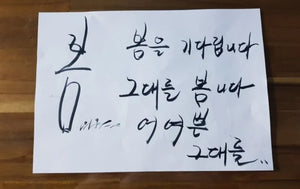 봄
봄을 기다립니다
그대를 봅니다
어여쁜
그대를..